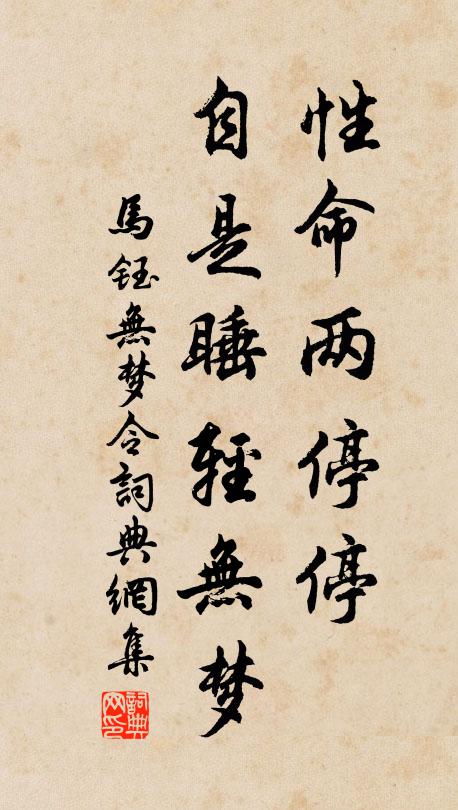 性命两停停
自是睡輕無梦
馬鈺無梦令詞典網集
詞典网印